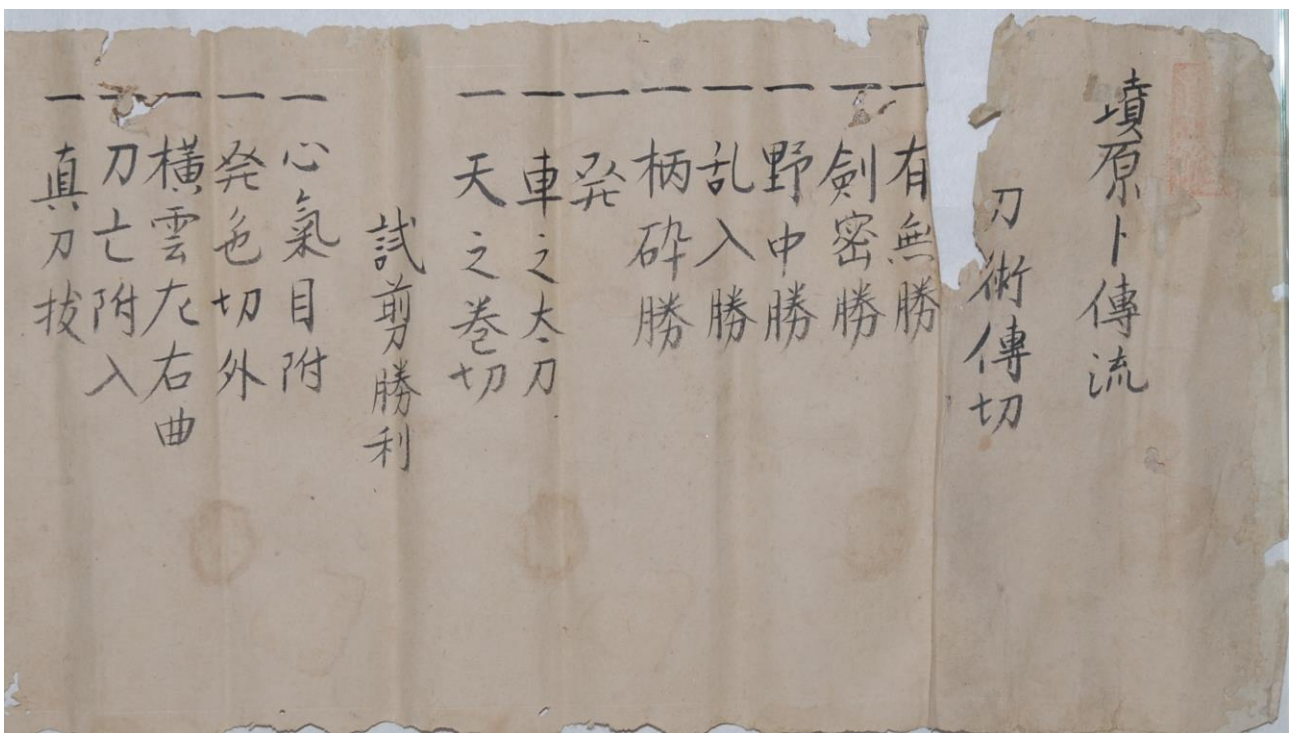 墳原卜傳流
刀術傳切
一 有無勝
一 劍密勝
一 野中勝
一 乱入勝
一 柄砕勝
一 発
一 車之太刀
一 天之巻切
試剪勝利
一 心氣目附
一 発色切外
一 横雲左右曲
一 刀亡附入
一 真刀拔